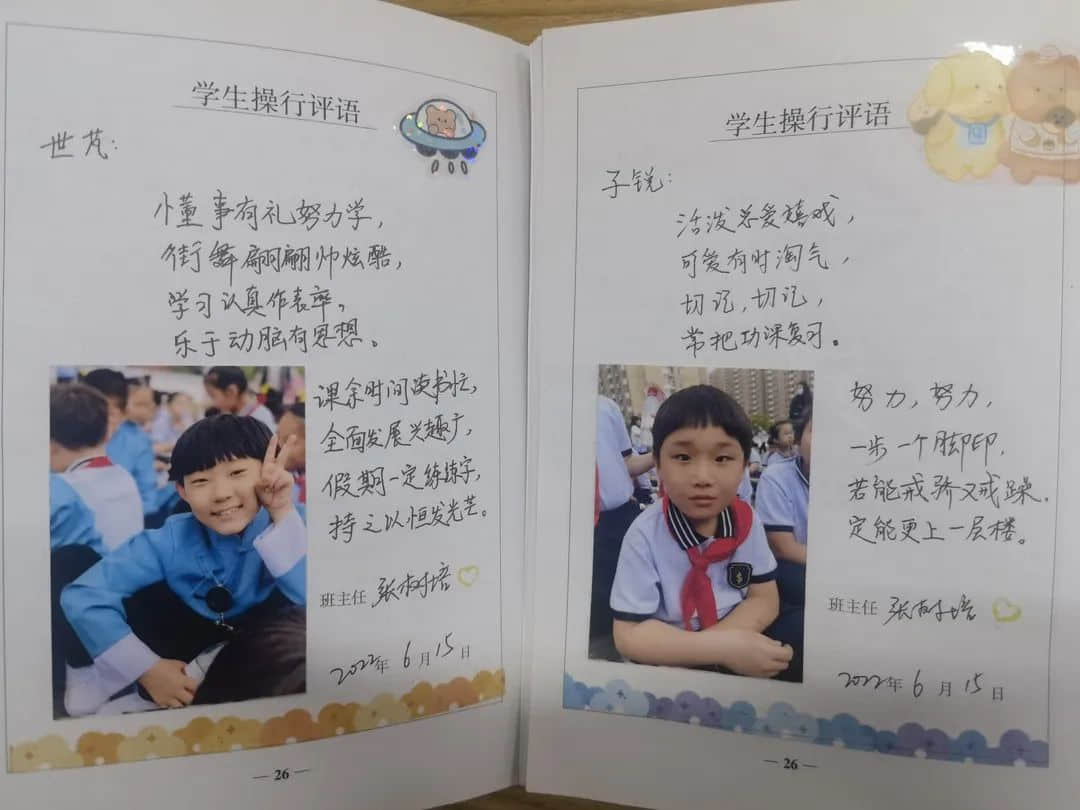 学生操行评语
世芃：
懂事有礼努力学，
街舞翩翩帅炫酷，
学习认真作表率。
乐于动脑有思想。
课余时间读书忙，
全面发展兴趣广，
假期一定练练字，
持之以恒发光芒。
班主任 张树培
2022年6月15日
— 26 —
学生操行评语
子锐：
活泼总爱嬉戏，
可爱有时淘气，
切记，切记，
常把功课复习。
努力，努力，
一步一个脚印，
若能戒骄又戒躁，
定能更上一层楼。
班主任 张树培
2022年6月15日
— 26 —